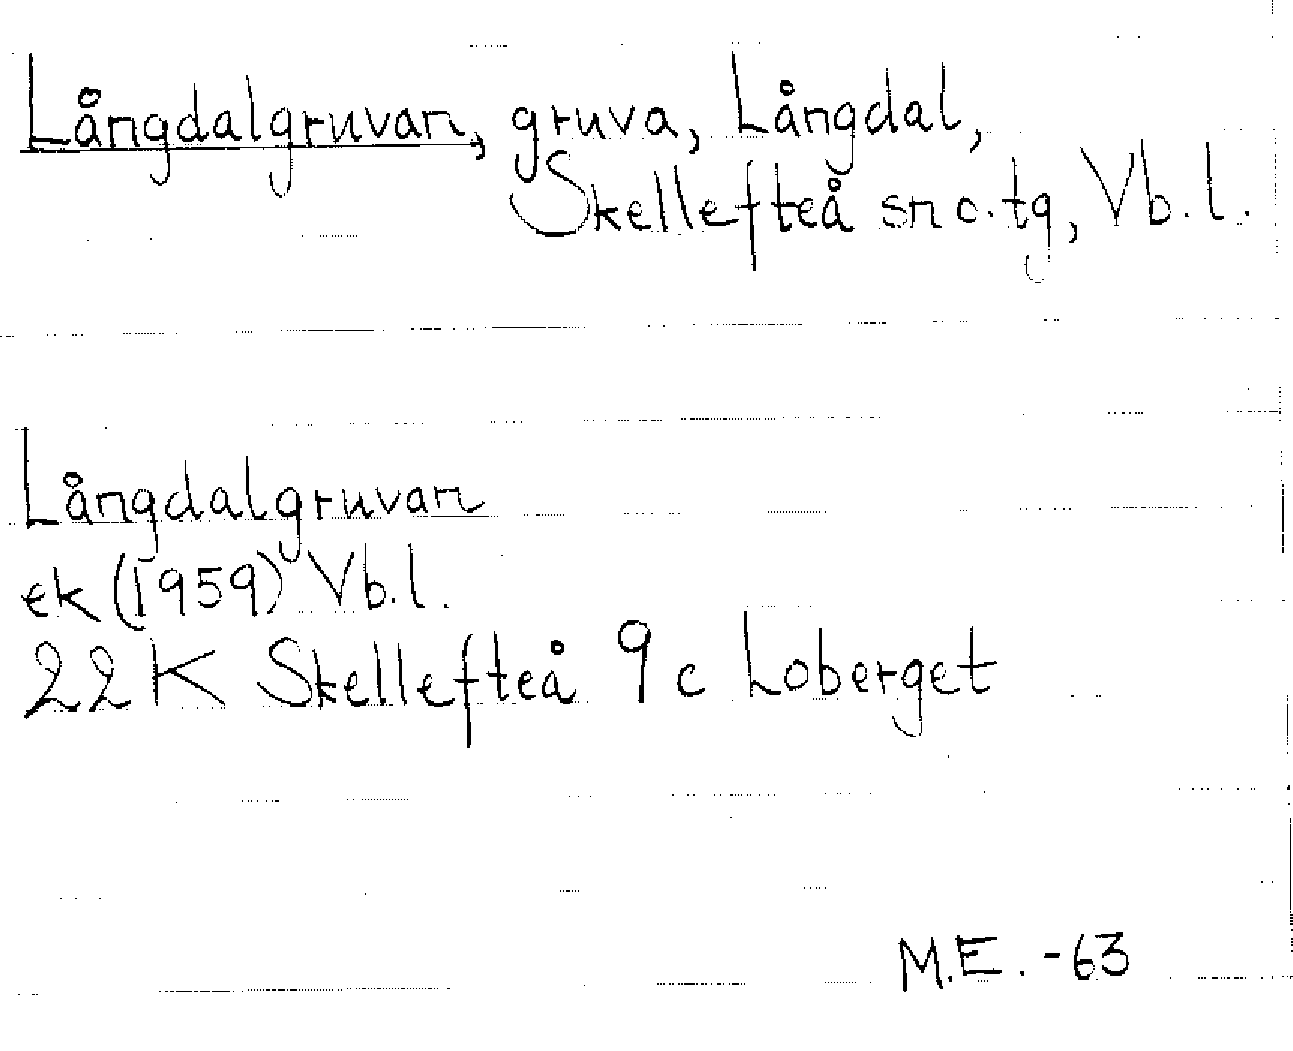 Långdalgruvan, gruva, Långdal,
Skellefteå sn o. tg, Vb. l.
Långdalgruvan
ek (1959) Vb. l.
22 K Skellefteå 9 c Loberget
M.E. -63